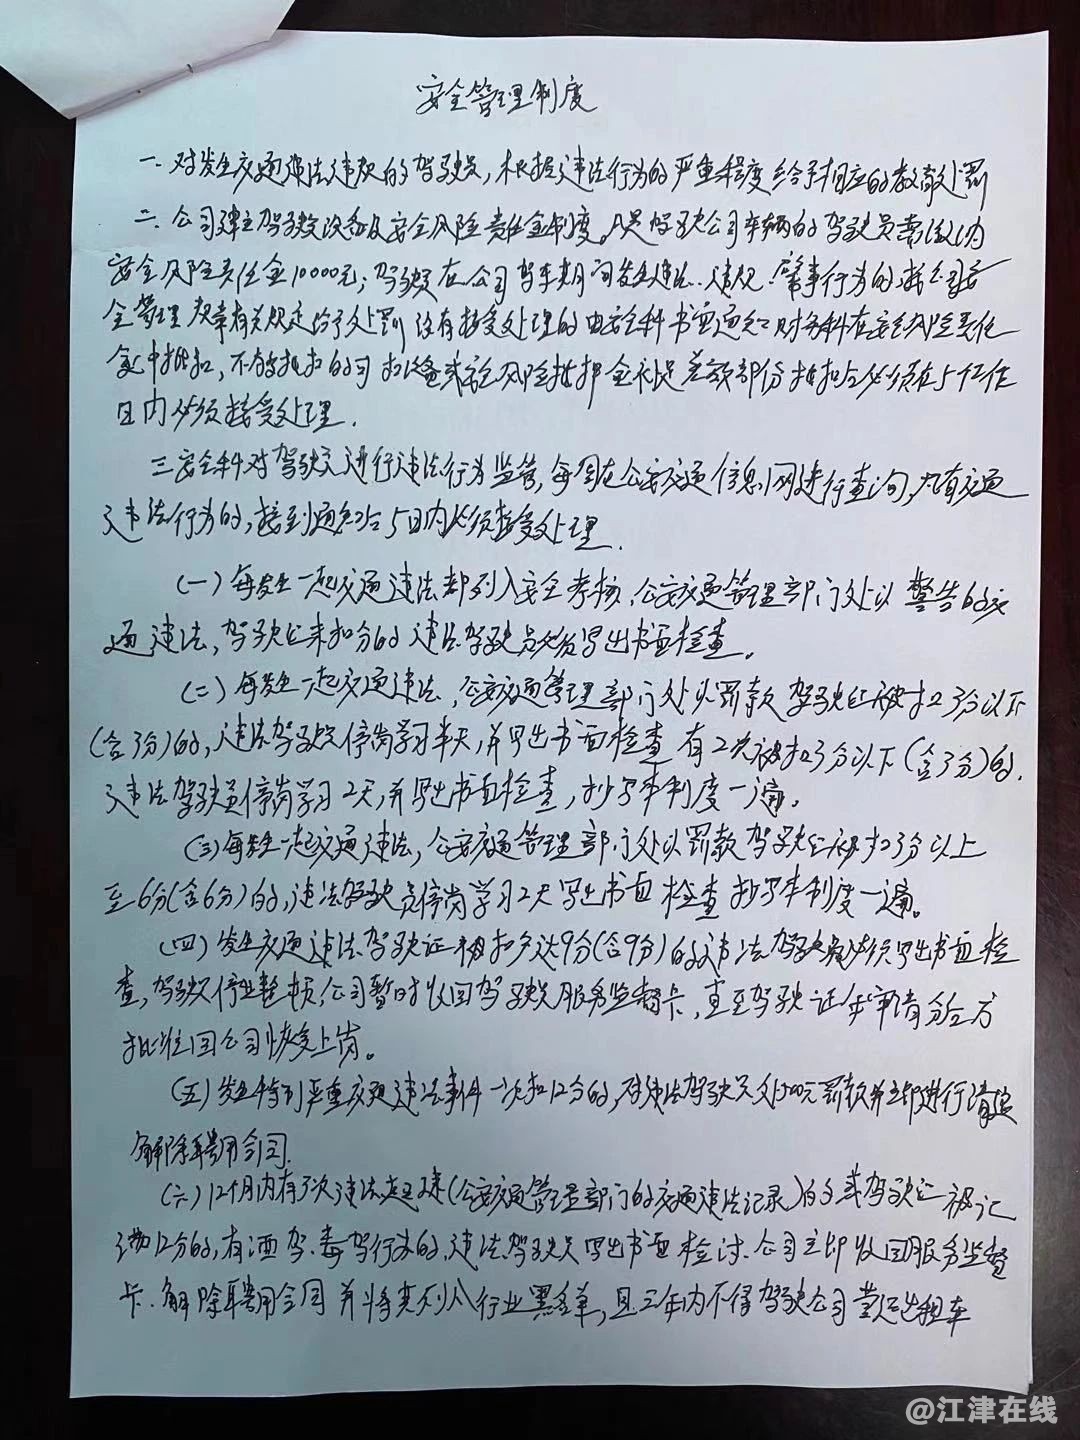 安全管理制度
一、对发生交通违法违规的驾驶员,根据违法行为的严重程度给予相应的教育处罚
二、公司建立驾驶员设备及安全风险责任金制度。凡是驾驶公司车辆的驾驶员需缴纳
安全风险责任金10000元;驾驶员在公司驾车期间发生违法、违规、肇事行为的按公司安
全管理规章有关规定给予处罚 没有接受处理的由安全科书面通知财务科在安全风险责任
金中抵扣,不够抵扣的司 押金 补足差额部份 抵扣后必须在5个工作
日内必须接受处理.
三安全科对驾驶员进行违法行为监管,每周在公安交通信息网进行查询,凡有交通
违法行为的,接到通知后5日内必须接受处理.
(一)每发生一起交通违法都列入安全考核,公安交通管理部门处以警告的交
通违法,驾驶证未扣分的 违法驾驶员必须写出书面检查。
(二)每发生一起交通违法,公安交通管理部门处以罚款 驾驶证被扣3分以下
(含3分)的,违法驾驶员停岗学习半天,并写出书面检查 有2次被扣3分以下(含3分)的.
违法驾驶员停岗学习2天,并写出书面检查,抄写本制度一遍。
(三)每发生一起交通违法,公安交通管理部门处以罚款 驾驶证被扣3分以上
至6分(含6分)的,违法驾驶员停岗学习2天 写出书面检查 抄写本制度一遍。
(四)发生交通违法 驾驶证被扣分达9分(含9分)的违法驾驶员必须写出书面检
查,驾驶员停业整顿,公司暂时收回驾驶员服务监督卡,直至驾驶证年审清分后方
批准回公司恢复上岗。
(五)发生特别严重交通违法事件一次扣12分的,对违法驾驶员处500元罚款并立即进行清退
解除聘用合同.
(六)12个月内有3次违法超速(公安交通管理部门的交通违法记录)的或驾驶证被记
满12分的,有酒驾、毒驾行为的,违法驾驶员写出书面检讨.公司立即收回服务监督
卡.解除聘用合同并将其列入行业黑名单,且三年内不得驾驶公司营运出租车
@江津在线